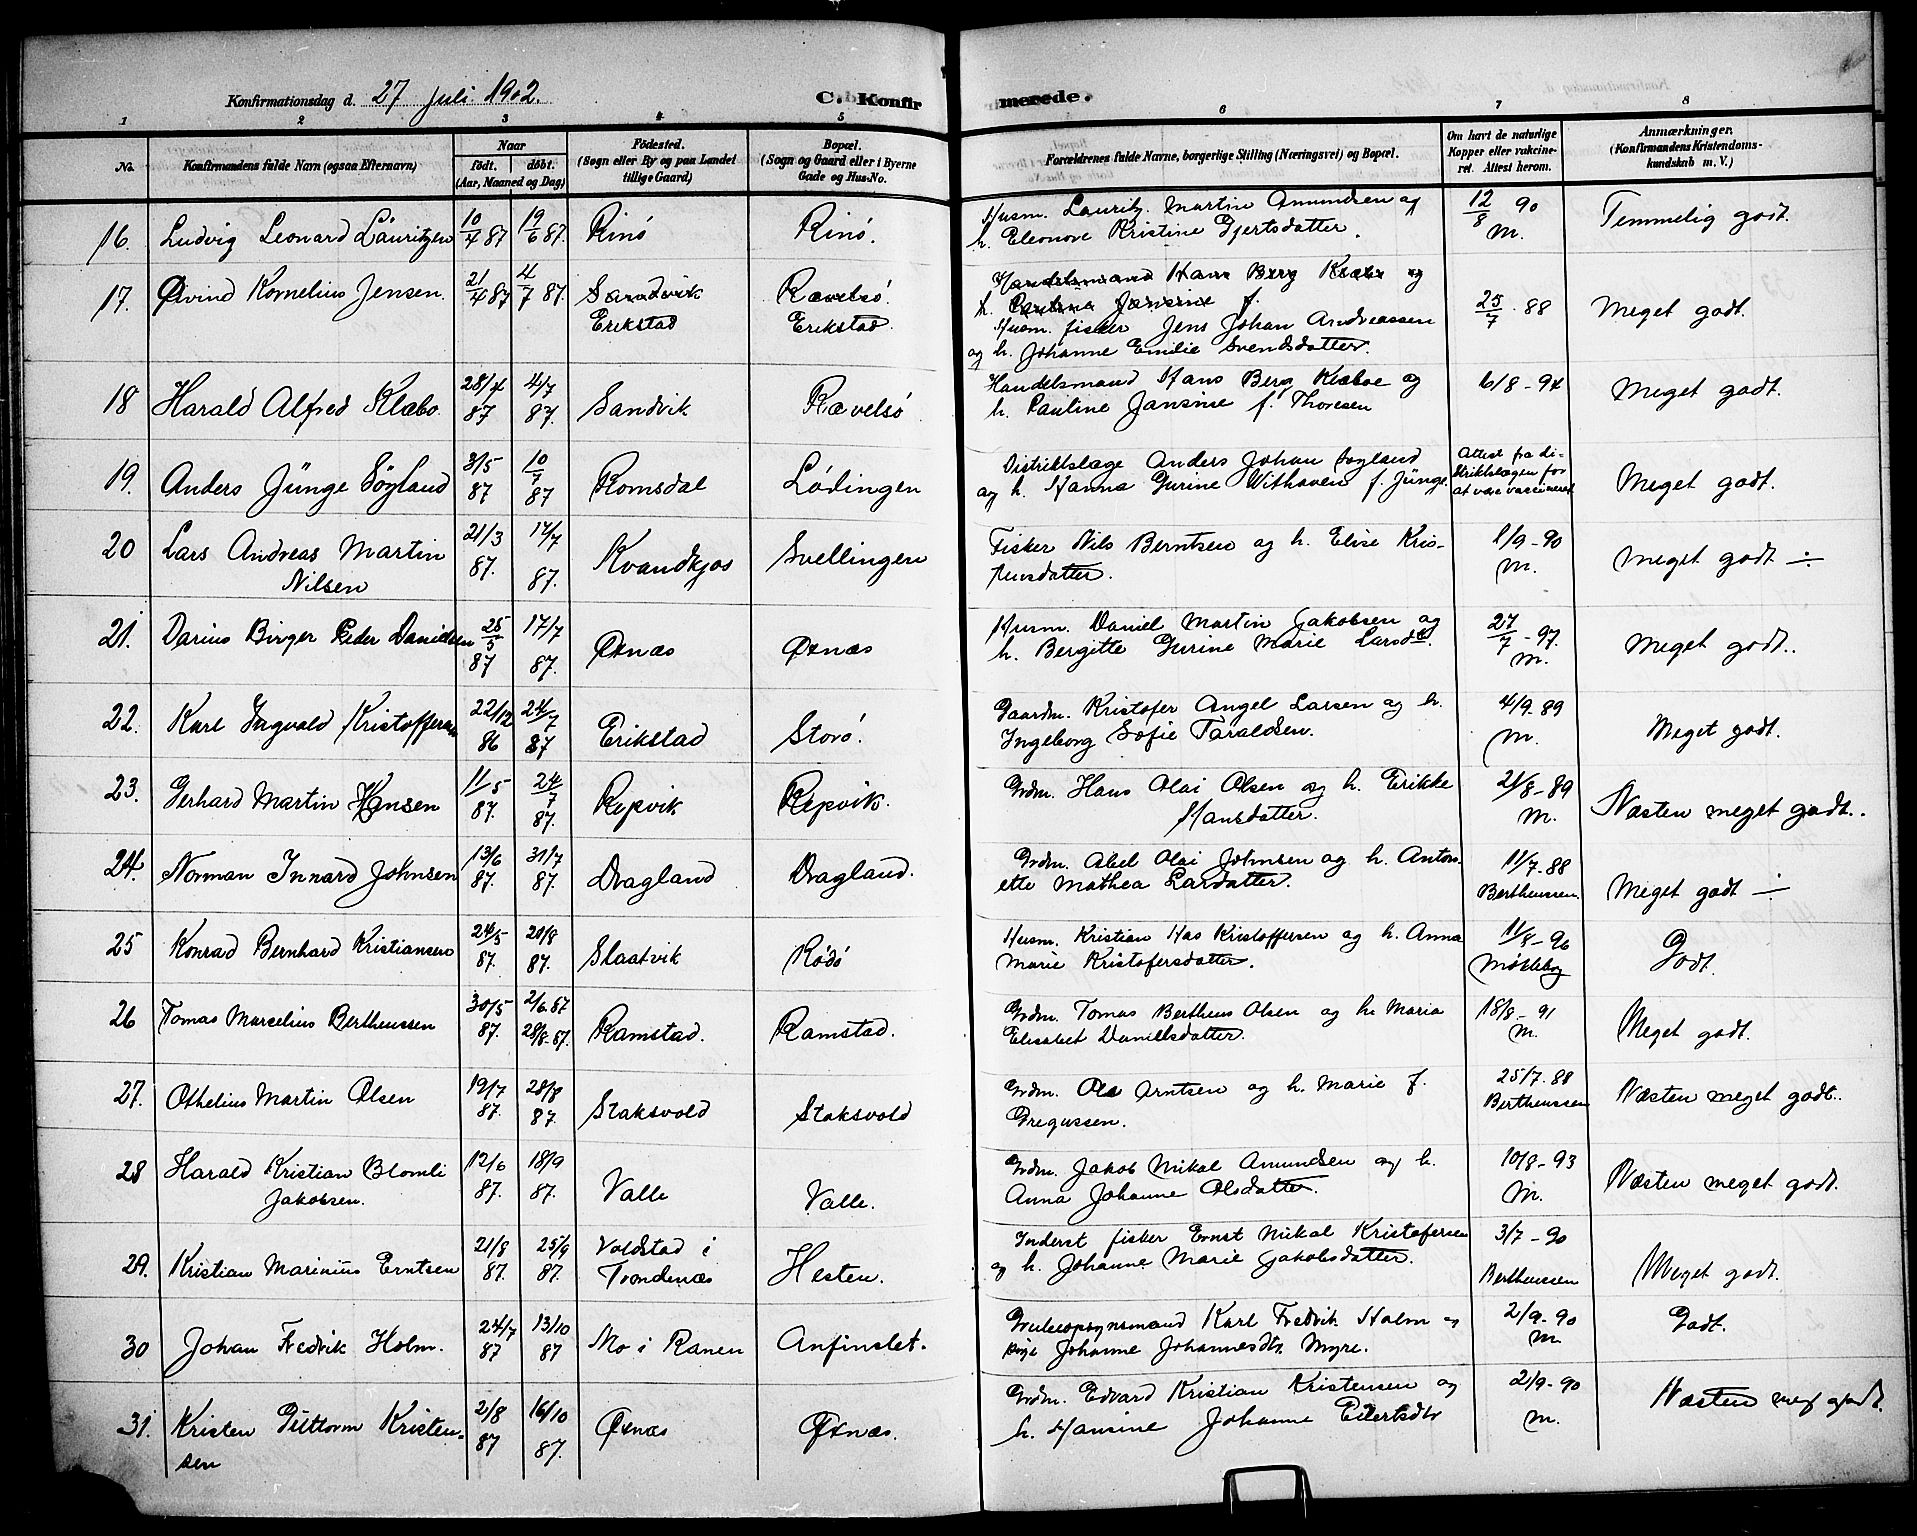 Konfirmationsdag d. 27 Juli 1902.
C. Konfirmerede.
1 2 3 4 5 6 7 8
No.
Konfirmandens fulde Navn (ogsaa Efternavn)
Naar
født. døbt.
(Aar, Maaned og Dag)
Fødested.
(Sogn eller By og paa Landet
tillige Gaard)
Bopæl.
(Sogn og Gaard eller i Byerne
Gade og Hus-No.
Forældrenes fulde Navne, borgerlige Stilling (Næringsvei) og Bopæl.
Om havt de naturlige
Kopper eller vakcine-
ret. Attest herom.
Anmærkninger.
(Konfirmandens Kristendoms-
kundskab m. V.)
16. Ludvig Leonard Lauritzen 10/4 87 19/6 87. Rinø Rinø. Husm. Lauritz Martin Amundsen og
h. Eleonore Kristine Gjertsdatter. 12/8 90 M. Temmelig godt.
17. Øivind Kornelius Jensen. 21/4 87 4/7 87. Sandvik Rævelsø. Handelsmand Hans Berg Klæbo og
h. Pauline Jansine f.
Erikstad Erikstad. Husm. fisker Jens Johan Andreassen
og h. Johanne Emilie Svendsdatter. 25/7 88 Meget godt.
18 Harald Alfred Klæbo. 28/4 87 4/7 87. Sandvik Rævelsø Handelsmand Hans Berg Klæboe og
h. Pauline Jansine f. Thoresen 6/8 - 94 Meget godt.
19. Anders Jünge Søyland 31/5 87 10/7 87 Romsdal Lødingen Distriktslæge Anders Johan Søyland
og h. Hanna Gurine Withaven f. Jünge. Attest fra di-
striktslægen for
at være vaccineret Meget godt.
20 Lars Andreas Martin
Nilsen 21/3 87. 17/7 87. Kvandkjos Svellingen Fisker Nils Berntsen og h. Elise Kris-
tensdatter. 1/9 - 90 M. Meget godt ÷
21. Darius Birger Peder Danielsen 25/5 87 17/7 87. Øxnæs Øxnæs Husm. Daniel Martin Jakobsen og
h. Bergitte Gurine Marie Larsdt. 27/7 - 97. M. Meget godt..
22. Karl Ingvald Kristoffersen 22/12 86 24/7 87 Erikstad Storø. Gaardm. Kristofer Angel Larsen og h.
Ingeborg Sofie Taraldsen. 4/9 - 89 M. Meget godt.
23. Gerhard Martin Hansen 11/5 87. 24/7 87. Repvik Repvik. Grdm. Hans Olai Olsen og h. Erikke
Hansdatter. 21/8 - 89 M. Næsten meget godt..
24. Norman Innard Johnsen 13/6 87. 31/7 87. Dragland Dragland. Grdm. Abel Olai Johnsen og h. Anton-
ette Mathea Larsdatter. 11/7 - 88 Bertheussen. Meget godt ÷
25 Konrad Bernhard Kristiansen 24/5 87. 21/8 87. Slaatvik Rødø Husm. Kristian Has Kristoffersen og h. Anna
Marie Kristofersdatter. 11/8 - 96 Møkleby Godt.
26 Tomas Marcelius Bertheussen 30/5 87. 2/6 87 28/8 - 87. Ramstad. Ramstad. Grdm. Tomas Bertheus Olsen og h. Maria
Elisabet Danielsdatter. 18/8 - 91 M. Meget godt.
27. Othelius Martin Olsen 19/7 87. 28/8 87. Staksvold Staksvold Grdm. Ole Arntsen og h. Marie f.
Gregussen. 25/7 - 88 Bertheussen Næsten meget godt..
28 Harald Kristian Blomli
Jakobsen. 12/6 87. 18/9 87. Valle Valle. Grdm. Jakob Mikal Amundsen og h.
Anna Johanne Olsdatter. 10/8 - 93 M. Næsten meget godt.
29. Kristian Marinius Erntsen 21/8 87. 25/9 87. Voldstad i
Trondenæs Hesten. Inderst fisker Ernst Mikal Kristofersen
og h. Johanne Marie Jakobsdatter. 3/7 - 90 Bertheussen Meget godt.
30 Johan Fredrik Holm. 24/7 87 13/10 87 Mo i Ranen Anfinslet. Grubeopsynsmand Karl Fredrik Holm og
pige Johanne Johannesdtr. Myre. 2/9 - 90 M. Godt.
31. Kristen Guttorm Kristen-
sen 2/8 87 16/10 87. Øxnæs Øxnæs. Grdm. Edvard Kristian Kristensen og
h. Hansine Johanne Edertsdtr 2/9 - 90 M. Næsten meg godt.